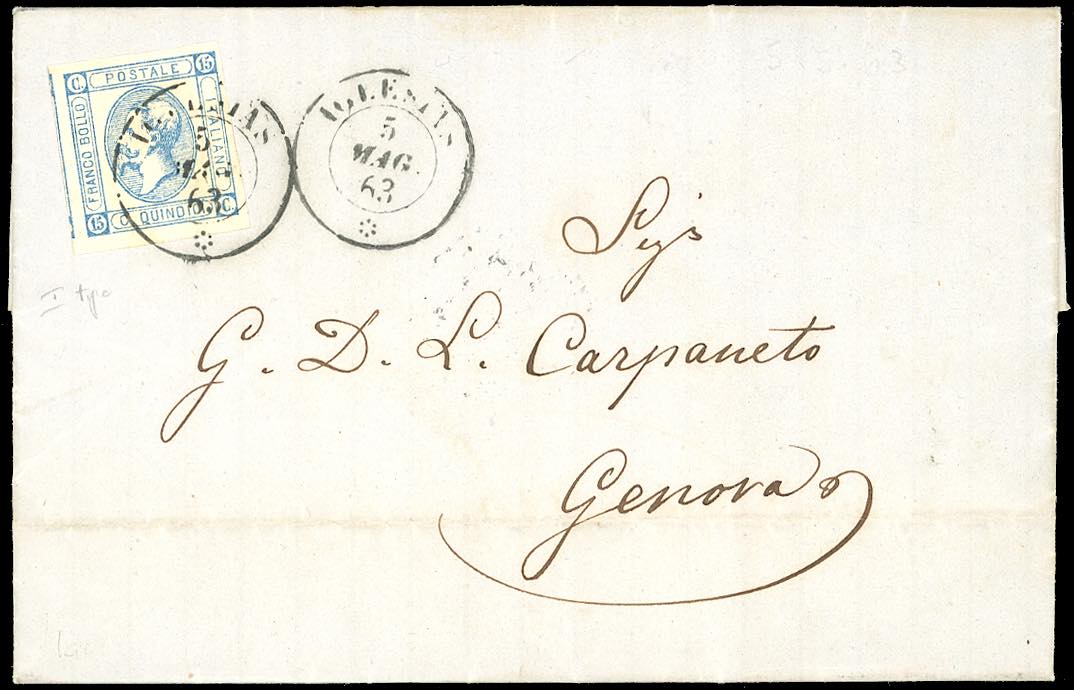 C. POSTALE 15
FRANCO BOLLO
ITALIANO
15 C. QUINDICI C.
IGLESIAS
5
MAG.
63
IGLESIAS
5
MAG.
63
I type
Sigr
G. D. L. Carpaneto
Genova